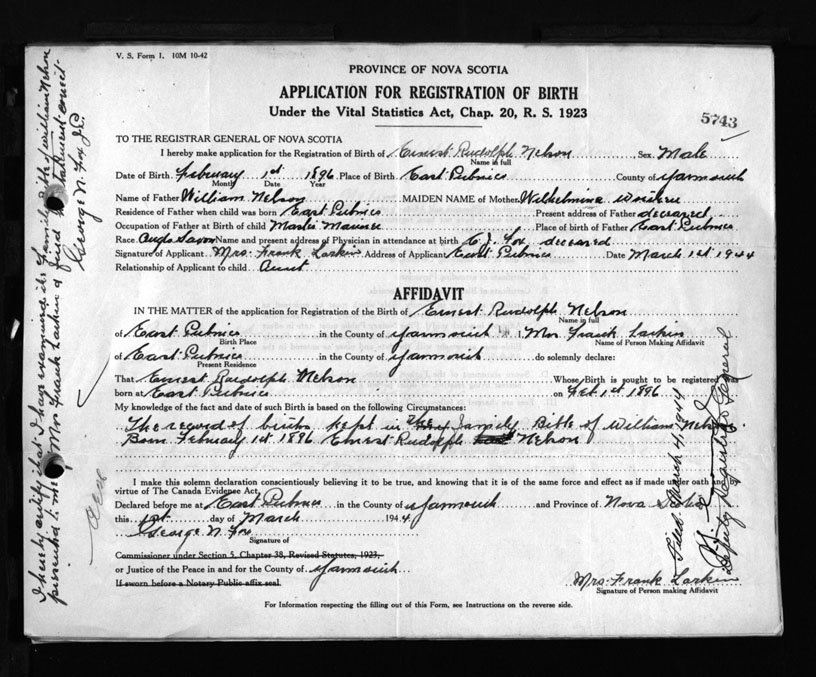 V. S. Form 1. 10M 10-42
PROVINCE OF NOVA SCOTIA
APPLICATION FOR REGISTRATION OF BIRTH
Under the Vital Statistics Act, Chap. 20, R. S. 1923
5743
TO THE REGISTRAR GENERAL OF NOVA SCOTIA
I hereby make application for the Registration of Birth of Ernest Rudolph Nelson Sex Male
Name in full
Date of Birth February 1st 1896 Place of Birth East Pubnico County of Yarmouth
Month Date Year
Name of Father William Nelson MAIDEN NAME of Mother Wilhelmina
Residence of Father when child was born East Pubnico Present address of Father deceased
Occupation of Father at Birth of child Master Mariner Place of birth of Father East Pubnico
Race Anglo Saxon Name and present address of Physician in attendance at birth C. J. Fox deceased
Signature of Applicant Mrs. Frank Larkin Address of Applicant East Pubnico Date March 1st 1944
Relationship of Applicant to child Aunt
AFFIDAVIT
IN THE MATTER of the application for Registration of the Birth of Ernest Rudolph Nelson
Name in full
of East Pubnico in the County of Yarmouth I, Mrs Frank Larkin
Birth Place Name of Person Making Affidavit
of East Pubnico in the County of Yarmouth do solemnly declare:
Present Residence
That Ernest Rudolph Nelson Whose Birth is sought to be registered was
born at East Pubnico on Feb 1st 1896
My knowledge of the fact and date of such Birth is based on the following Circumstances:
The record of births kept in the family Bible of William Nelson
Born February 1st 1896 Ernest Rudolph Nelson
I make this solemn declaration conscientiously believing it to be true, and knowing that it is of the same force and effect as if made under oath and by
virtue of The Canada Evidence Act,
Declared before me at East Pubnico in the County of Yarmouth and Province of Nova Scotia
this 1st day of March 1944
George N. Fox
Signature of
Commissioner under Section 5, Chapter 38, Revised Statutes, 1923,
or Justice of the Peace in and for the County of Yarmouth
If sworn before a Notary Public affix seal
Mrs. Frank Larkin
Signature of Person making Affidavit
For Information respecting the filling out of this Form, see Instructions on the reverse side.
I hereby certify that I have examined the family Bible of William Nelson
presented to me by Mrs Frank Larkin & find the statement correct
George N. Fox J.P.
Filed March 4, 1944
Deputy Registrar General